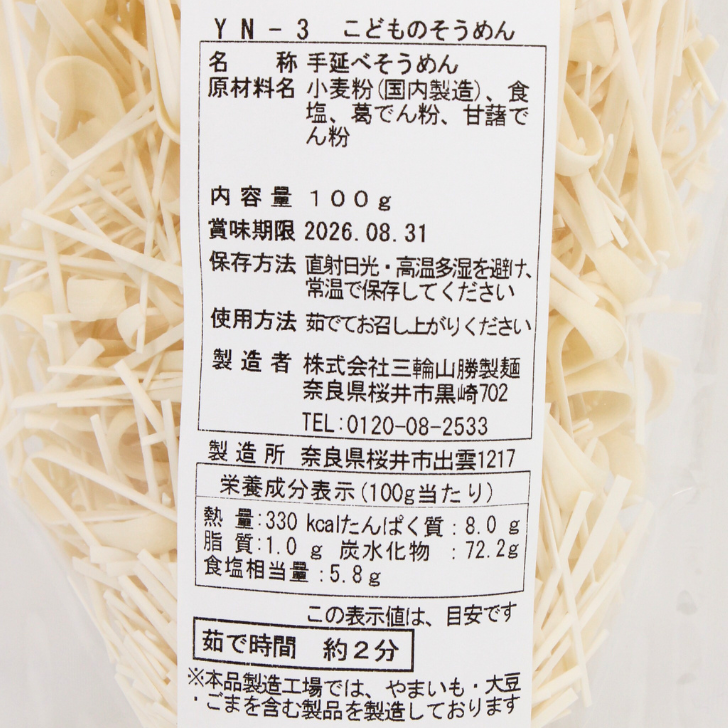 YN-3 こどものそうめん
名称 手延べそうめん
原材料名 小麦粉(国内製造)、食
塩、葛でん粉、甘藷で
ん粉
内容量 100g
賞味期限 2026.08.31
保存方法 直射日光・高温多湿を避け、
常温で保存してください
使用方法 茹でてお召し上がりください
製造者 株式会社三輪山勝製麺
奈良県桜井市黒崎702
TEL:0120-08-2533
製造所 奈良県桜井市出雲1217
栄養成分表示(100g当たり)
熱量:330 kcalたんぱく質:8.0 g
脂質:1.0 g 炭水化物 :72.2g
食塩相当量:5.8g
この表示値は、目安です
茹で時間 約2分
※本品製造工場では、やまいも・大豆
・ごまを含む製品を製造しております